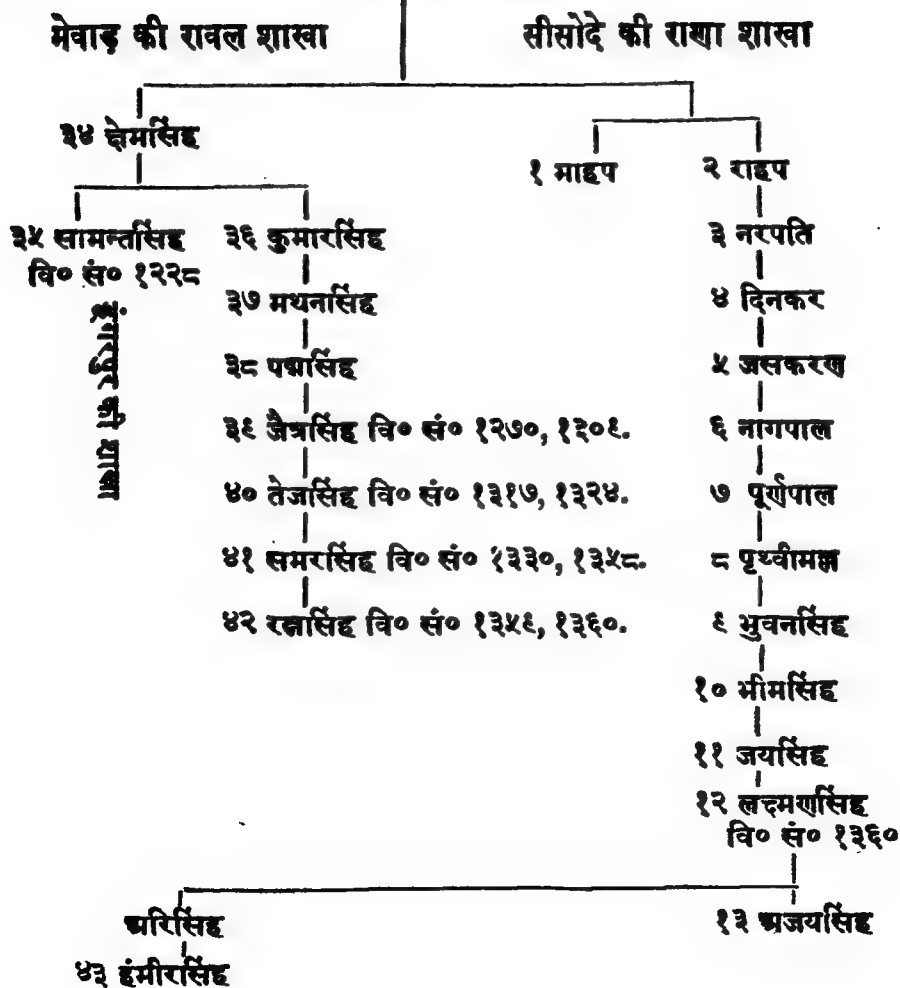 मेवाड़ की रावल शाखा
सीसोदे की राणा शाखा
३४ क्षेमसिंह
१ माहप
२ राहप
३५ सामन्तसिंह
वि० सं० १२२८
डूंगरपुर की शाखा
३६ कुमारसिंह
३७ मथनसिंह
३८ पद्मसिंह
३९ जैत्रसिंह वि० सं० १२७०, १३०९.
४० तेजसिंह वि० सं० १३१७, १३२४.
४१ समरसिंह वि० सं० १३३०, १३५८.
४२ रत्नसिंह वि० सं० १३५९, १३६०.
३ नरपति
४ दिनकर
५ जसकरण
६ नागपाल
७ पूर्णपाल
८ पृथ्वीमल्ल
९ भुवनसिंह
१० भीमसिंह
११ जयसिंह
१२ लक्ष्मणसिंह
वि० सं० १३६०
अरिसिंह
४३ हंमीरसिंह
१३ अजयसिंह